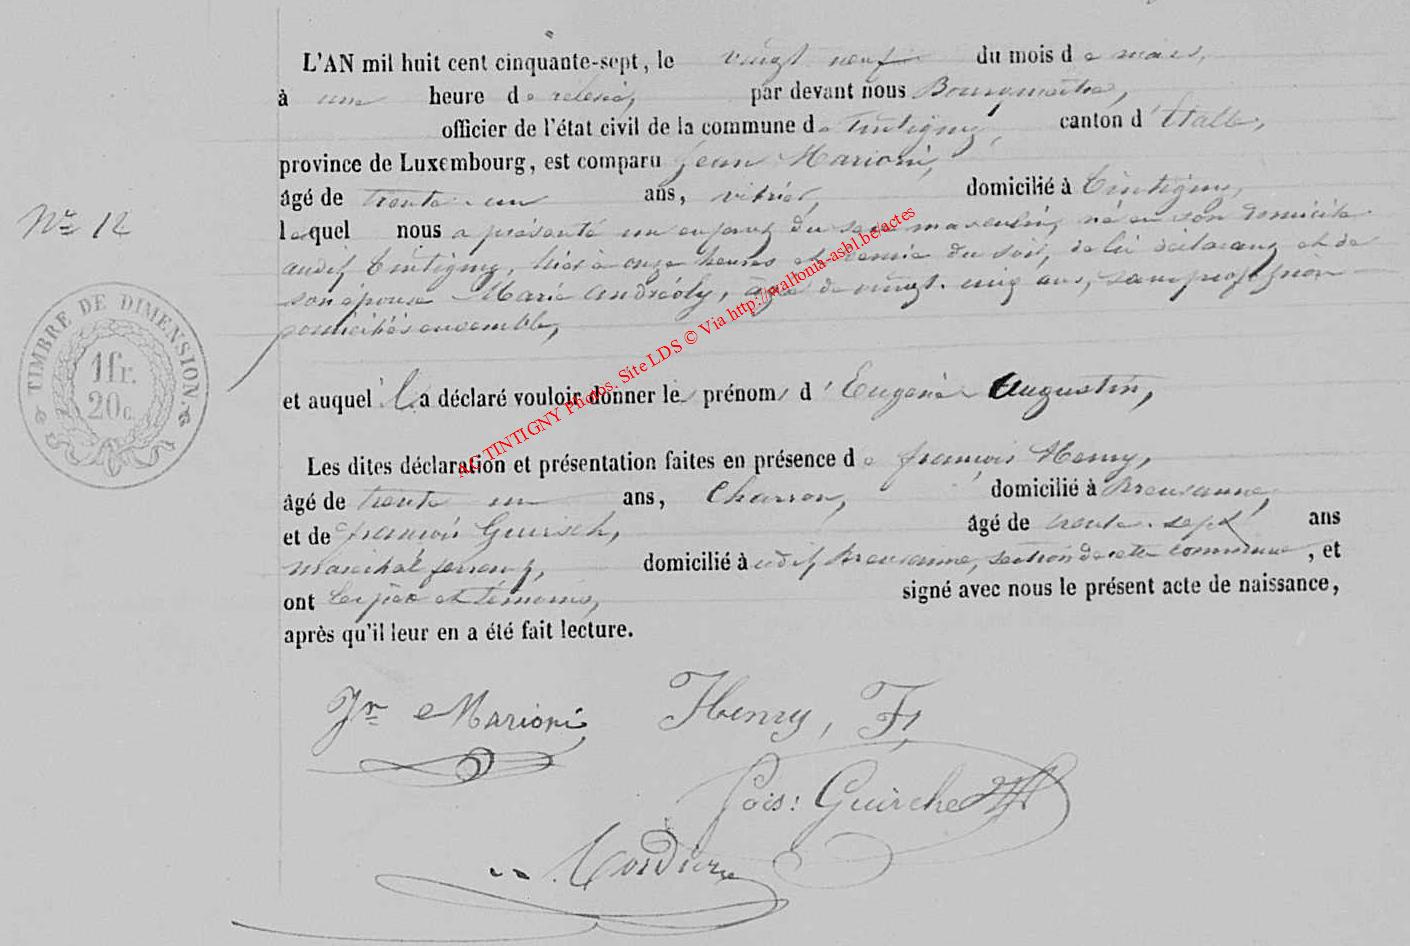 L'AN mil huit cent cinquante-sept, le vingt neuf du mois de mars,
à une heure de relevée, par devant nous Bourgmestre,
officier de l'état civil de la commune de Tintigny, canton d'Etalle,
province de Luxembourg, est comparu Jean Marioni,
âgé de trente-un ans, vitrier, domicilié à Tintigny,
Nº 12
lequel nous a présenté un enfant du sexe masculin, né en son domicile
audit Tintigny, hier à onze heures et demie du soir, de lui déclarant et de
son épouse Marie Andréoly, âgée de vingt-cinq ans, sans profession
domiciliés ensemble,
TIMBRE DE DIMENSION
1 fr.
20 c.
et auquel il a déclaré vouloir donner les prénoms d'Eugène Augustin,
Les dites déclaration et présentation faites en présence de françois Henry,
âgé de trente un ans, Charron, domicilié à Breuvanne,
et de françois Guirsch, âgé de trente-sept ans
maréchal ferrant, domicilié à udit Breuvanne, section de cette commune, et
ont les père et témoins, signé avec nous le présent acte de naissance,
après qu'il leur en a été fait lecture.
Jn Marioni Henry, F,
fois: Guirche
AC TINTIGNY Photos. Site LDS © Via http://wallonia-asbl.be/actes